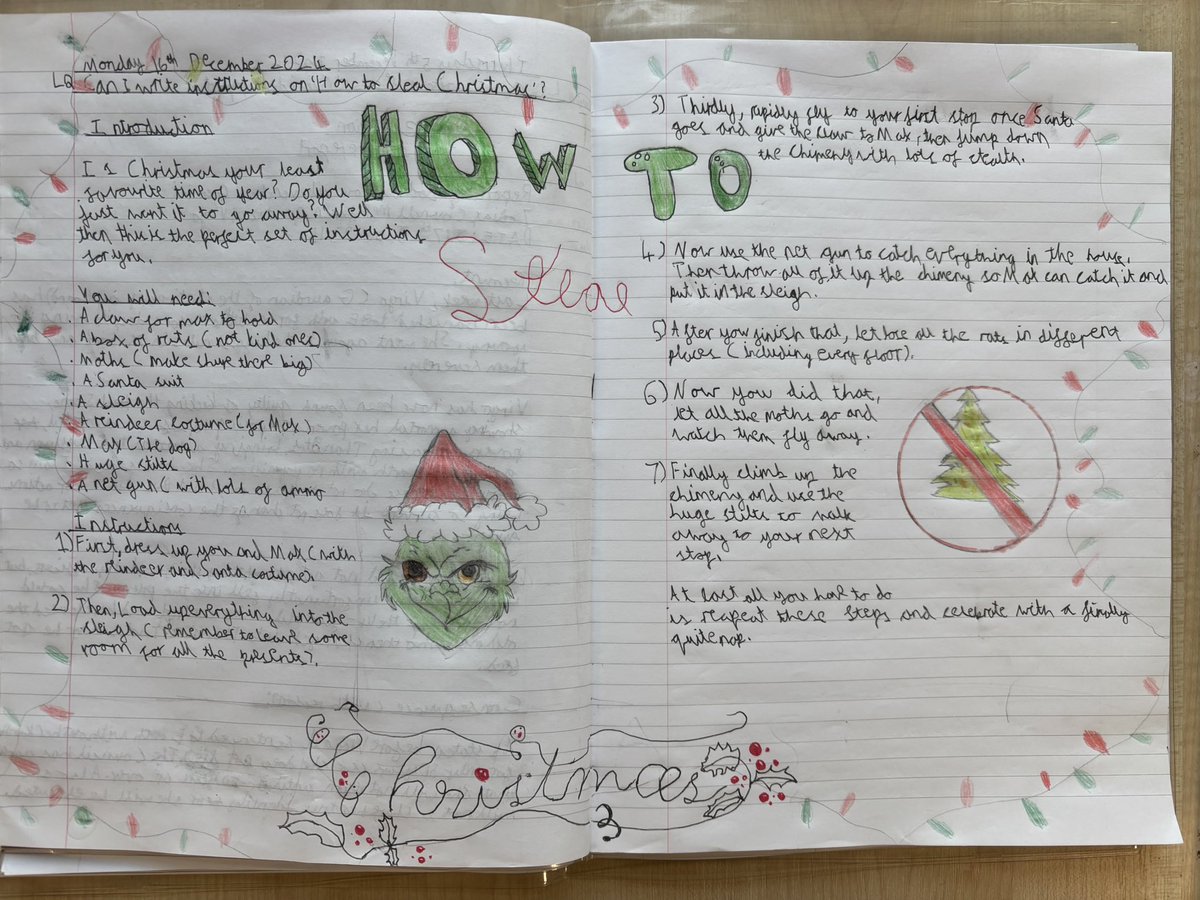 Monday 16th December 2024
LQ Can I write instructions on 'How to steal Christmas'?
Introduction
Is Christmas your least
favourite time of year? Do you
just want it to go away? Well
then this is the perfect set of instructions
for you.
You will need:
A claw for max to hold
A box of rats (not kind ones)
Moths (make shure there big)
A Santa suit
A sleigh
A reindeer costume (for Max)
Max (The dog)
Huge stilts
A net gun (with lots of ammo
Instructions
1) First, dress up you and Max (with
the reindeer and Santa costume).
2) Then, Load up everything into the
sleigh (remember to leave some
room for all the presents).
HOW TO
Steal
Christmas
3) Thirdly, rapidly fly to your first stop once Santa
goes and give the claw to Max, then jump down
the chimeny with lots of stealth.
4) Now use the net gun to catch everything in the house.
Then throw all of it up the chimeny so Max can catch it and
put it in the sleigh.
5) After you finish that, let lose all the rats in different
places (including every floor).
6) Now you did that,
let all the moths go and
watch them fly away.
7) Finally climb up the
chimeny and use the
huge stilts to walk
away to your next
stop.
At last all you have to do
is reapeat these steps and celebrate with a finally
quite nap.